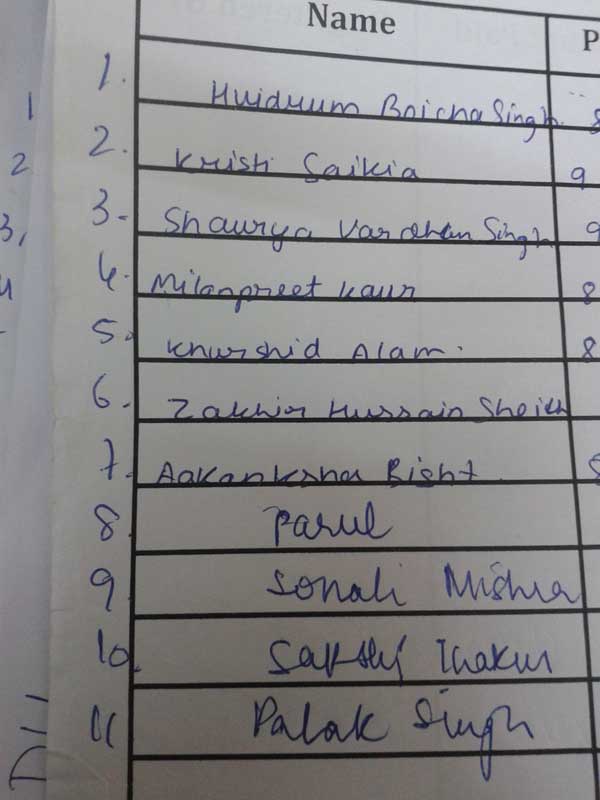 Name P
1. Huidrum Boicha Singh 8
2. Kristi Saikia 9
3. Shaurya Vardhan Singh 9
4. Milanpreet Kaur 8
5. Khurshid Alam. 8
6. Zakhir Hussain Sheikh
7. Aakanksha Bisht 8
8. Parul
9. Sonali Mishra
10. Sakshi Thakur
11 Palak Singh